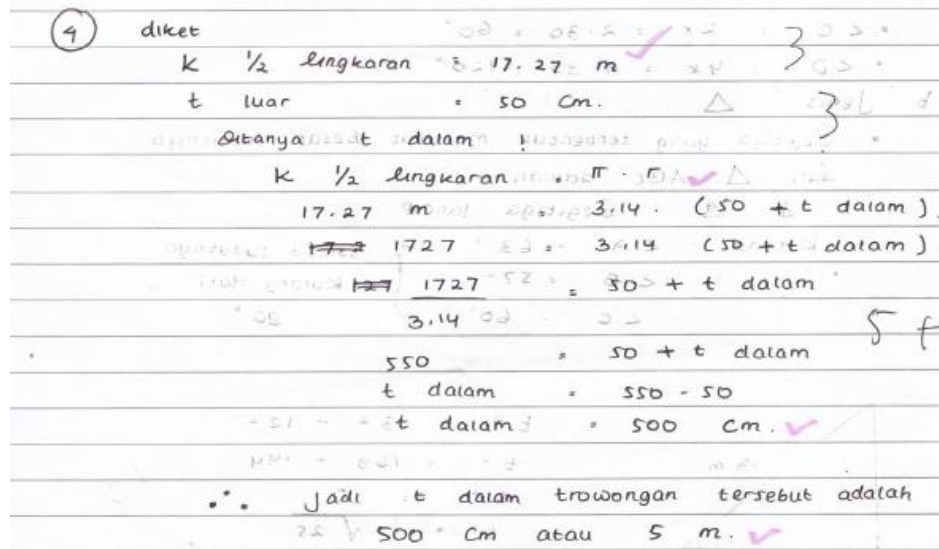 4 diket
K 1/2 lingkaran = 17.27 m
t luar = 50 cm.
Ditanya t dalam !
K 1/2 lingkaran = π . r
17.27 m = 3.14 . (50 + t dalam)
1727 = 3.14 (50 + t dalam)
1727 / 3.14 = 50 + t dalam
550 = 50 + t dalam
t dalam = 550 - 50
t dalam = 500 cm.
∴ Jadi t dalam trowongan tersebut adalah
500 cm atau 5 m.